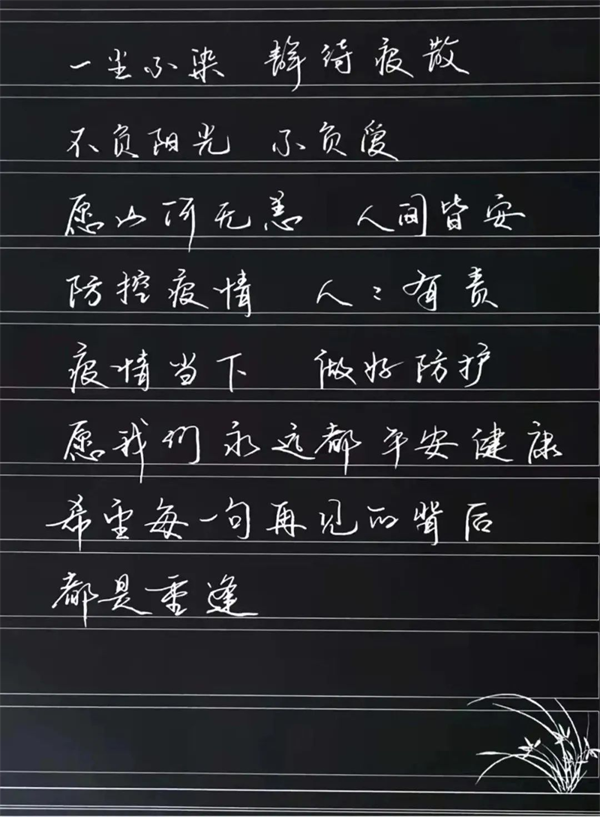 一尘不染 静待疫散
不负阳光 不负爱
愿山河无恙 人间皆安
防控疫情 人々有责
疫情当下 做好防护
愿我们永远都平安健康
希望每一句再见的背后
都是重逢